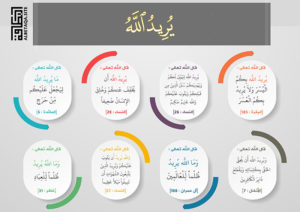 يُرِيدُ ٱللَّه
قال الله تعالى:
يُرِيدُ اللَّه بِكُمُ
الْيُسْرَ وَلَا يُرِيدُ
بِكُمُ الْعُسْرَ
[البقرة : 185]
قال الله تعالى:
[النساء : 26]
قال الله تعالى:
يُرِيدُ اللَّه أَن
يُخَفِّفَ عَنكُمْ وَخُلِقَ
الْإِنسَانُ ضَعِيفًا
[النساء : 28]
قال الله تعالى:
مَا يُرِيدُ اللَّه
لِيَجْعَلَ عَلَيْكُم
مِّنْ حَرَجٍ
[المائدة : 6]
قال الله تعالى:
وَيُرِيدُ اللَّه أَن يُحِقَّ
الْحَقَّ بِكَلِمَاتِهِ وَيَقْطَعَ
دَابِرَ الْكَافِرِينَ
[الأنفال : 7]
قال الله تعالى:
وَمَا اللَّه يُرِيدُ
ظُلْمًا لِّلْعَالَمِينَ
[آل عمران : 108]
قال الله تعالى:
[النساء : 27]
قال الله تعالى:
وَمَا اللَّه يُرِيدُ
ظُلْمًا لِّلْعِبَادِ
[غافر : 31]